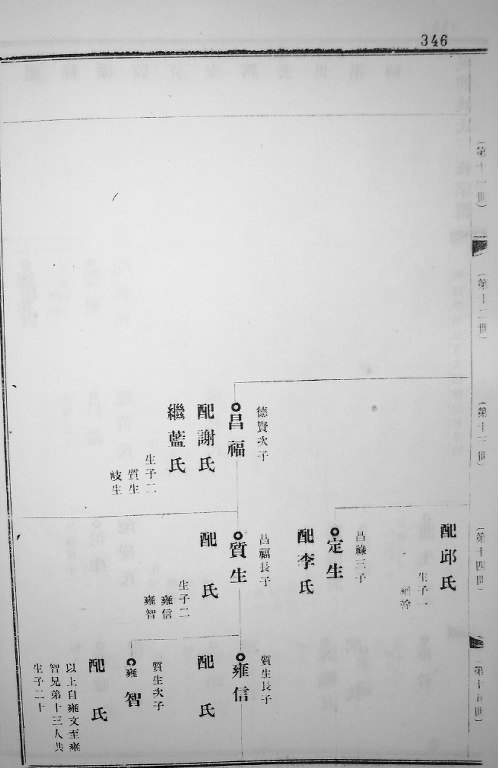 346
(第十一世)
(第十二世)
(第十三世)
(第十四世)
(第十五世)
德賢次子
昌福
配謝氏
繼藍氏
生子二
質生
配邱氏
生子一
昌祿三子
定生
配李氏
昌福長子
質生
配 氏
生子二
雍信
雍智
質生長子
雍信
配 氏
質生次子
雍智
配 氏
以上自雍文至雍
智兄弟十三人共
生子二十